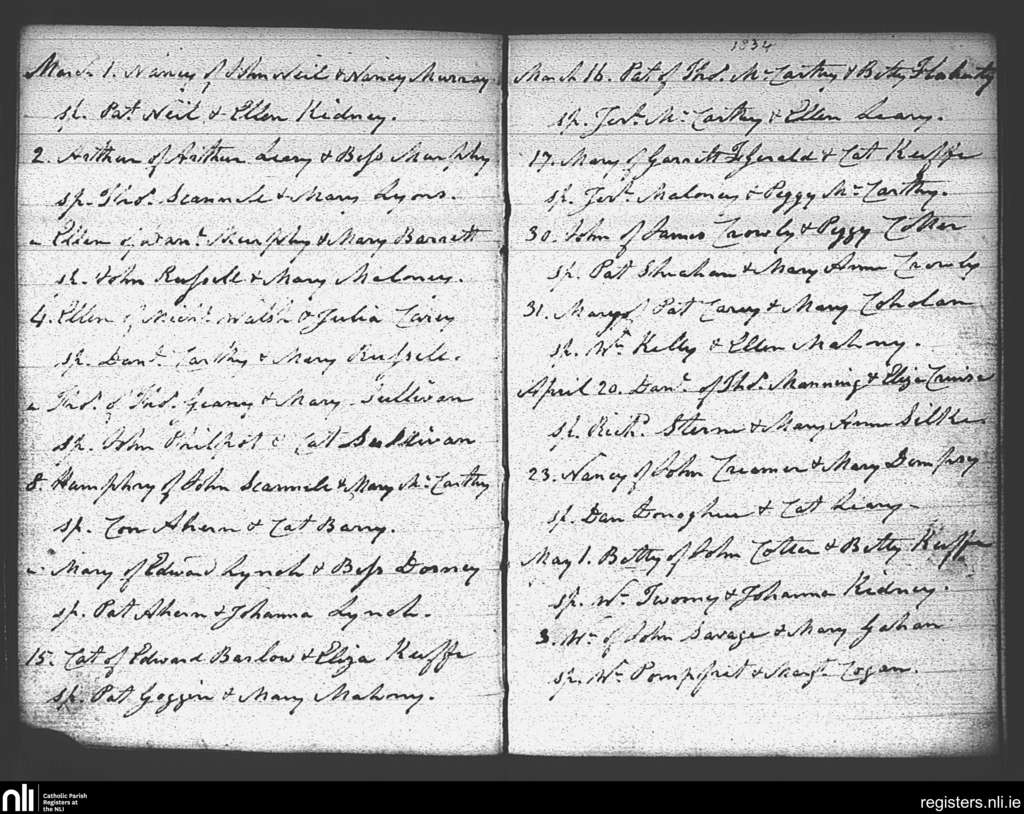 March 1. Nancy of John Neil & Nancy Murray
sp. Pat. Neil & Ellen Kidney.
2. Arthur of Arthur Leary & Bess Murphy
sp. Thos. Scannele & Mary Lyons.
" Ellen of Danl. Murphy & Mary Barrett
sp. John Russell & Mary Maloney.
4. Ellen of Michl. Walsh & Julia Carey
sp. Danl. Carthy & Mary Russell.
" Thos. of Thos. Geany & Mary Sullivan
sp. John Philpot & Cat Sullivan
8. Humphry of John Scannele & Mary McCarthy
sp. Con Ahern & Cat Barry.
" Mary of Edward Lynch & Bess Dorney
sp. Pat Ahern & Johanna Lynch.
15. Cat of Edward Barlow & Eliza Keeffe
sp. Pat Goggin & Mary Mahony.
1834
March 16. Pat. of Thos. McCarthy & Betty Flaherty
sp. Jerh. McCarthy & Ellen Leary.
17. Mary of Garrett FzGerald & Cat Keeffe
sp. Jerh. Maloney & Peggy McCarthy.
30. John of James Crowly & Peggy Cotter
sp. Pat Sheehan & Mary Anne Crowly
31. Mary of Pat Carey & Mary Coholan
sp. Wm. Kelly & Ellen Mahony.
April 20. Danl. of Thos. Manning & Eliza Cruise
sp. Richd. Sterne & Mary Anne Silke
23. Nancy of John Creamer & Mary Dempsy
sp. Dan Donoghue & Cat Leary.
May 1. Betty of John Cotter & Betty Keeffe
sp. Wm. Twomey & Johanna Kidney.
3. Wm. of John Savage & Mary Gahan
sp. Wm. Pomphret & Margt. Cogan.
nli Catholic Parish
Registers at
the NLI
registers.nli.ie